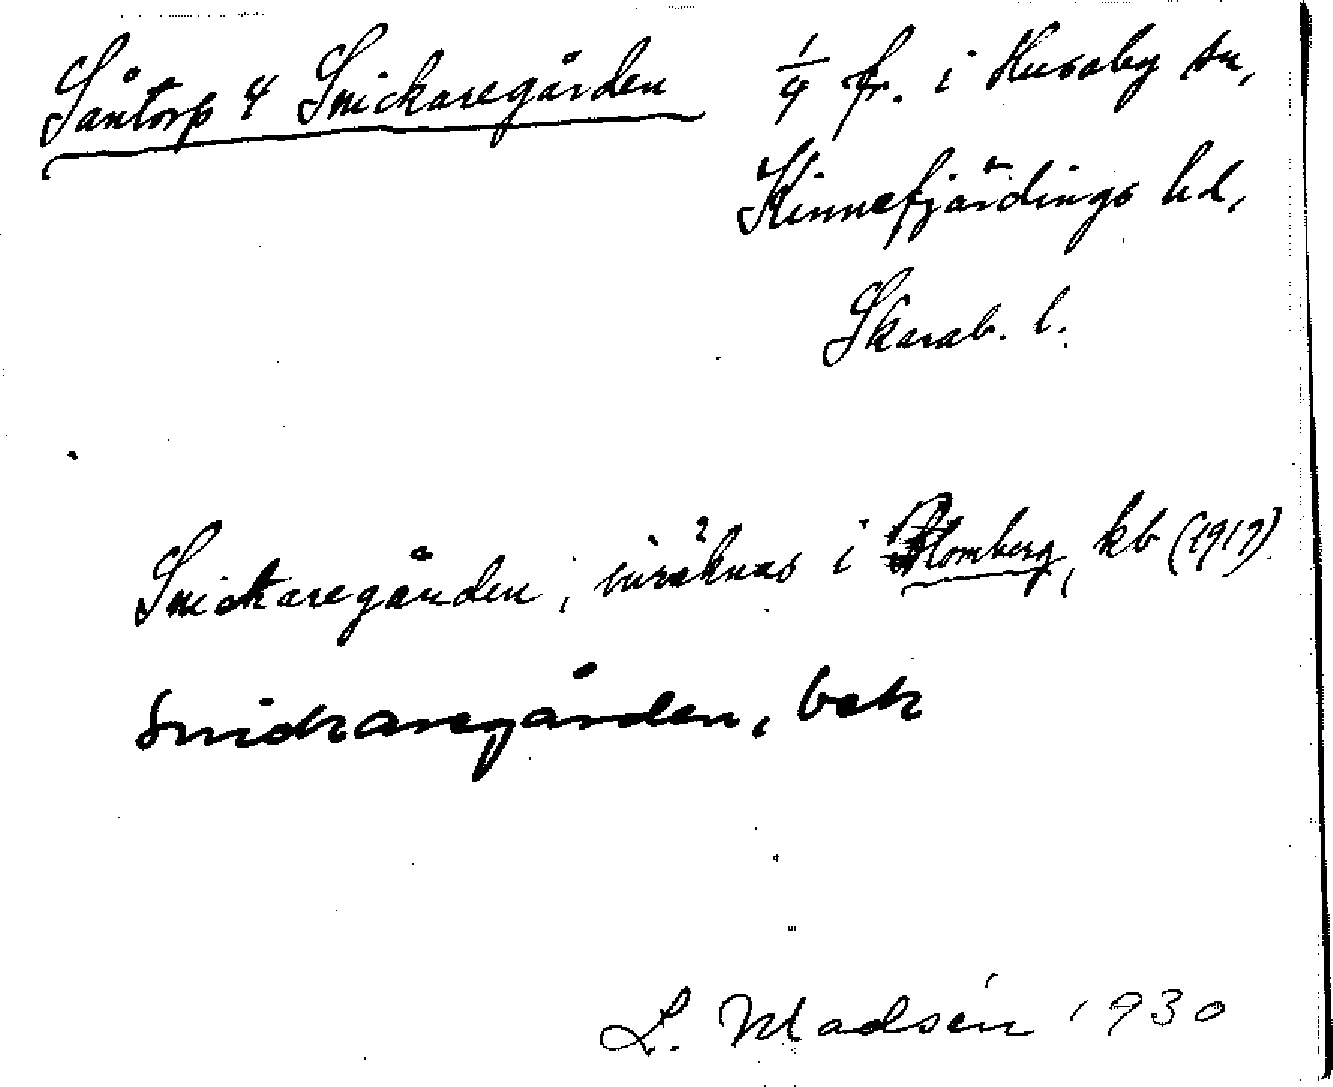 Såntorp 4 Snickaregården 1/4 fr. i Husaby sn,
Kinnefjärdings hd,
Skarab. l.
Snickaregården, inräknas i Blomberg, kb (1917)
Snickaregården, bek
L. Madsén 1930